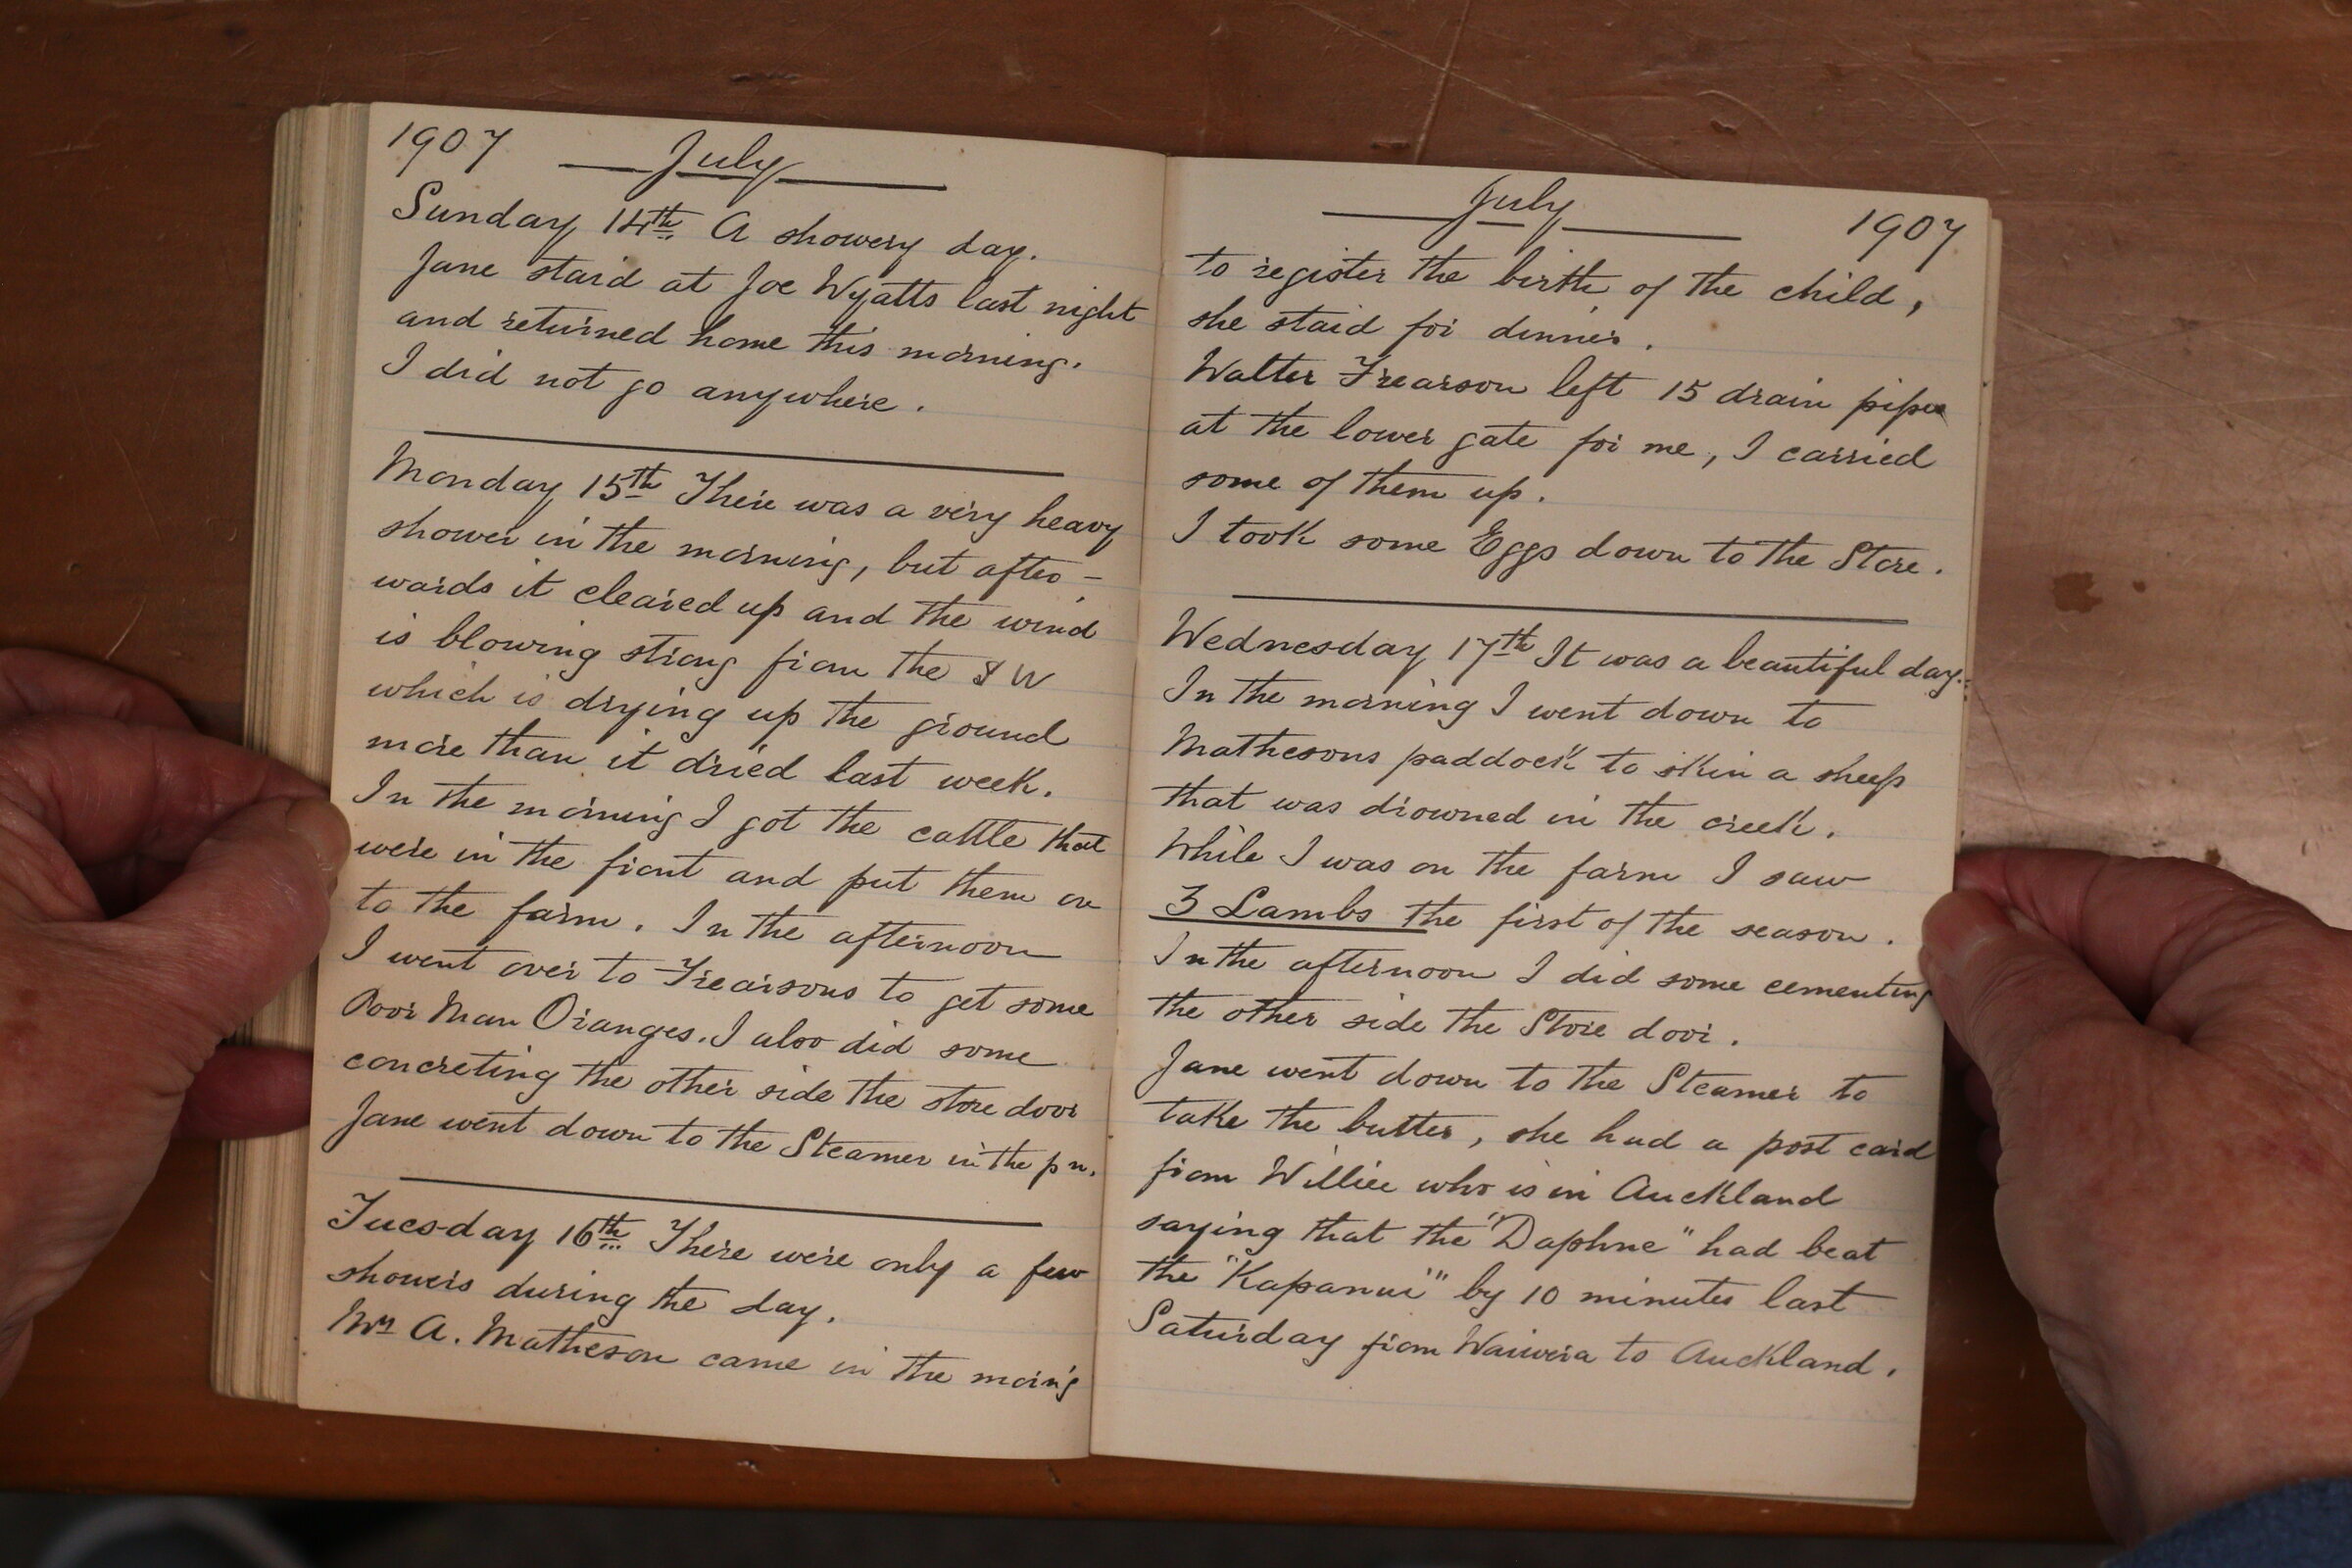 1907 July
Sunday 14th A showery day.
Jane staid at Joe Wyatts last night
and returned home this morning.
I did not go anywhere.
Monday 15th There was a very heavy
shower in the morning, but after-
wards it cleared up and the wind
is blowing strong from the S W
which is drying up the ground
more than it dried last week.
In the morning I got the cattle that
were in the front and put them on
to the farm. In the afternoon
I went over to Frearsons to get some
Poor Man Oranges. I also did some
concreting the other side the store door
Jane went down to the Steamer in the pm.
Tuesday 16th There were only a few
showers during the day.
Mrs A. Matheson came in the morn'g
July 1907
to register the birth of the child,
she staid for dinner.
Walter Frearson left 15 drain pipes
at the lower gate for me, I carried
some of them up.
I took some Eggs down to the Store.
Wednesday 17th It was a beautiful day.
In the morning I went down to
Mathesons paddock to skin a sheep
that was drowned in the creek.
While I was on the farm I saw
3 Lambs the first of the season.
In the afternoon I did some cementing
the other side the Store door.
Jane went down to the Steamer to
take the butter, she had a post card
from Willie who is in Auckland
saying that the "Daphne" had beat
the "Kapanui" by 10 minutes last
Saturday from Waiwera to Auckland.